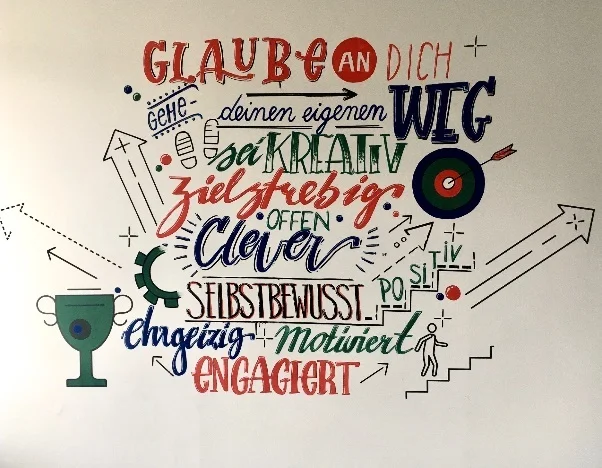 GLAUBE AN DICH
GEHE deinen eigenen WEG
sei KREATIV
zielstrebig
OFFEN
Clever
POSITIV
SELBSTBEWUSST
ehrgeizig Motiviert
ENGAGIERT